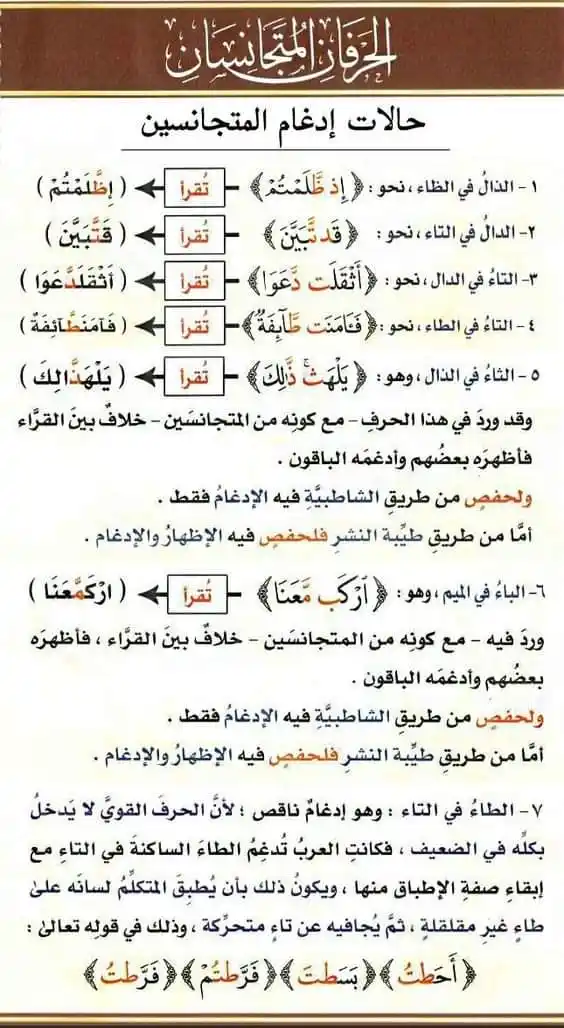 الحَرفَانِ المُتَجَانِسَانِ
حالات إدغام المتجانسين
١- الذالُ في الظاء ، نحو : ﴿ إِذ ظَّلَمْتُمْ ﴾ تُقرأ ( اِظَّلَمْتُمْ )
٢- الدالُ في التاء ، نحو : ﴿ قَد تَّبَيَّنَ ﴾ تُقرأ ( قَتَّبَيَّنَ )
٣- التاءُ في الدال ، نحو : ﴿ أَثْقَلَت دَّعَوَا ﴾ تُقرأ ( أَثْقَلَدَّعَوَا )
٤- التاءُ في الطاء ، نحو : ﴿ فَـَٔامَنَت طَّآئِفَةٌ ﴾ تُقرأ ( فَـآمَنَطَّـائِفَةٌ )
٥- الثاءُ في الذال ، وهو : ﴿ يَلْهَث ذَّٰلِكَ ﴾ تُقرأ ( يَلْهَذَّالِكَ )
وقد وردَ في هذا الحرفِ - مع كونِه من المتجانسَين - خلافٌ بينَ القرَّاء
فأظهرَه بعضُهم وأدغمَه الباقون .
ولحفصٍ من طريقِ الشاطبيَّةِ فيه الإدغامُ فقط .
أمَّا من طريقِ طيِّبة النشرِ فلحفصٍ فيه الإظهارُ والإدغام .
٦- الباءُ في الميم ، وهو : ﴿ ٱرْكَب مَّعَنَا ﴾ تُقرأ ( ارْكَمَّعَنَا )
وردَ فيه - مع كونِه من المتجانسَين - خلافٌ بينَ القرَّاء ، فأظهرَه
بعضُهم وأدغمَه الباقون .
ولحفصٍ من طريقِ الشاطبيَّةِ فيه الإدغامُ فقط .
أمَّا من طريقِ طيِّبة النشرِ فلحفصٍ فيه الإظهارُ والإدغام .
٧- الطاءُ في التاء : وهو إدغامٌ ناقص ؛ لأنَّ الحرفَ القويَّ لا يَدخلُ
بكلِّه في الضعيف ، فكانتِ العربُ تُدغِمُ الطاءَ الساكنةَ في التاءِ مع
إبقاءِ صفةِ الإطباقِ منها ، ويكونُ ذلك بأن يُطبِقَ المتكلِّمُ لسانَه علىٰ
طاءٍ غيرِ مقلقلةٍ ، ثمَّ يُجافيه عن تاءٍ متحرِّكة ، وذلك في قولِه تعالىٰ :
﴿ أَحَطتُ ﴾ ﴿ بَسَطتَ ﴾ ﴿ فَرَّطتُمْ ﴾ ﴿ فَرَّطتُ ﴾